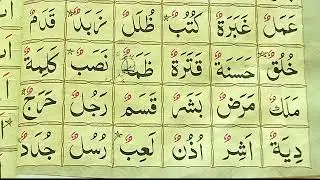 عَمَلٌ غَبَرَةٌ كُتُبٌ ظُلَلٌ قَدَمٌ
خُلُقٌ حَسَنَةٌ قَتَرَةٌ نَصَبٌ كَلِمَةٌ
مَلَكٌ مَرَضٌ بَشَرٌ قَسَمٌ رَجُلٌ حَرَجٌ
دِيَةٌ اَشِرٌ اُذُنٌ لَعِبٌ رُسُلٌ جُدَدٌ